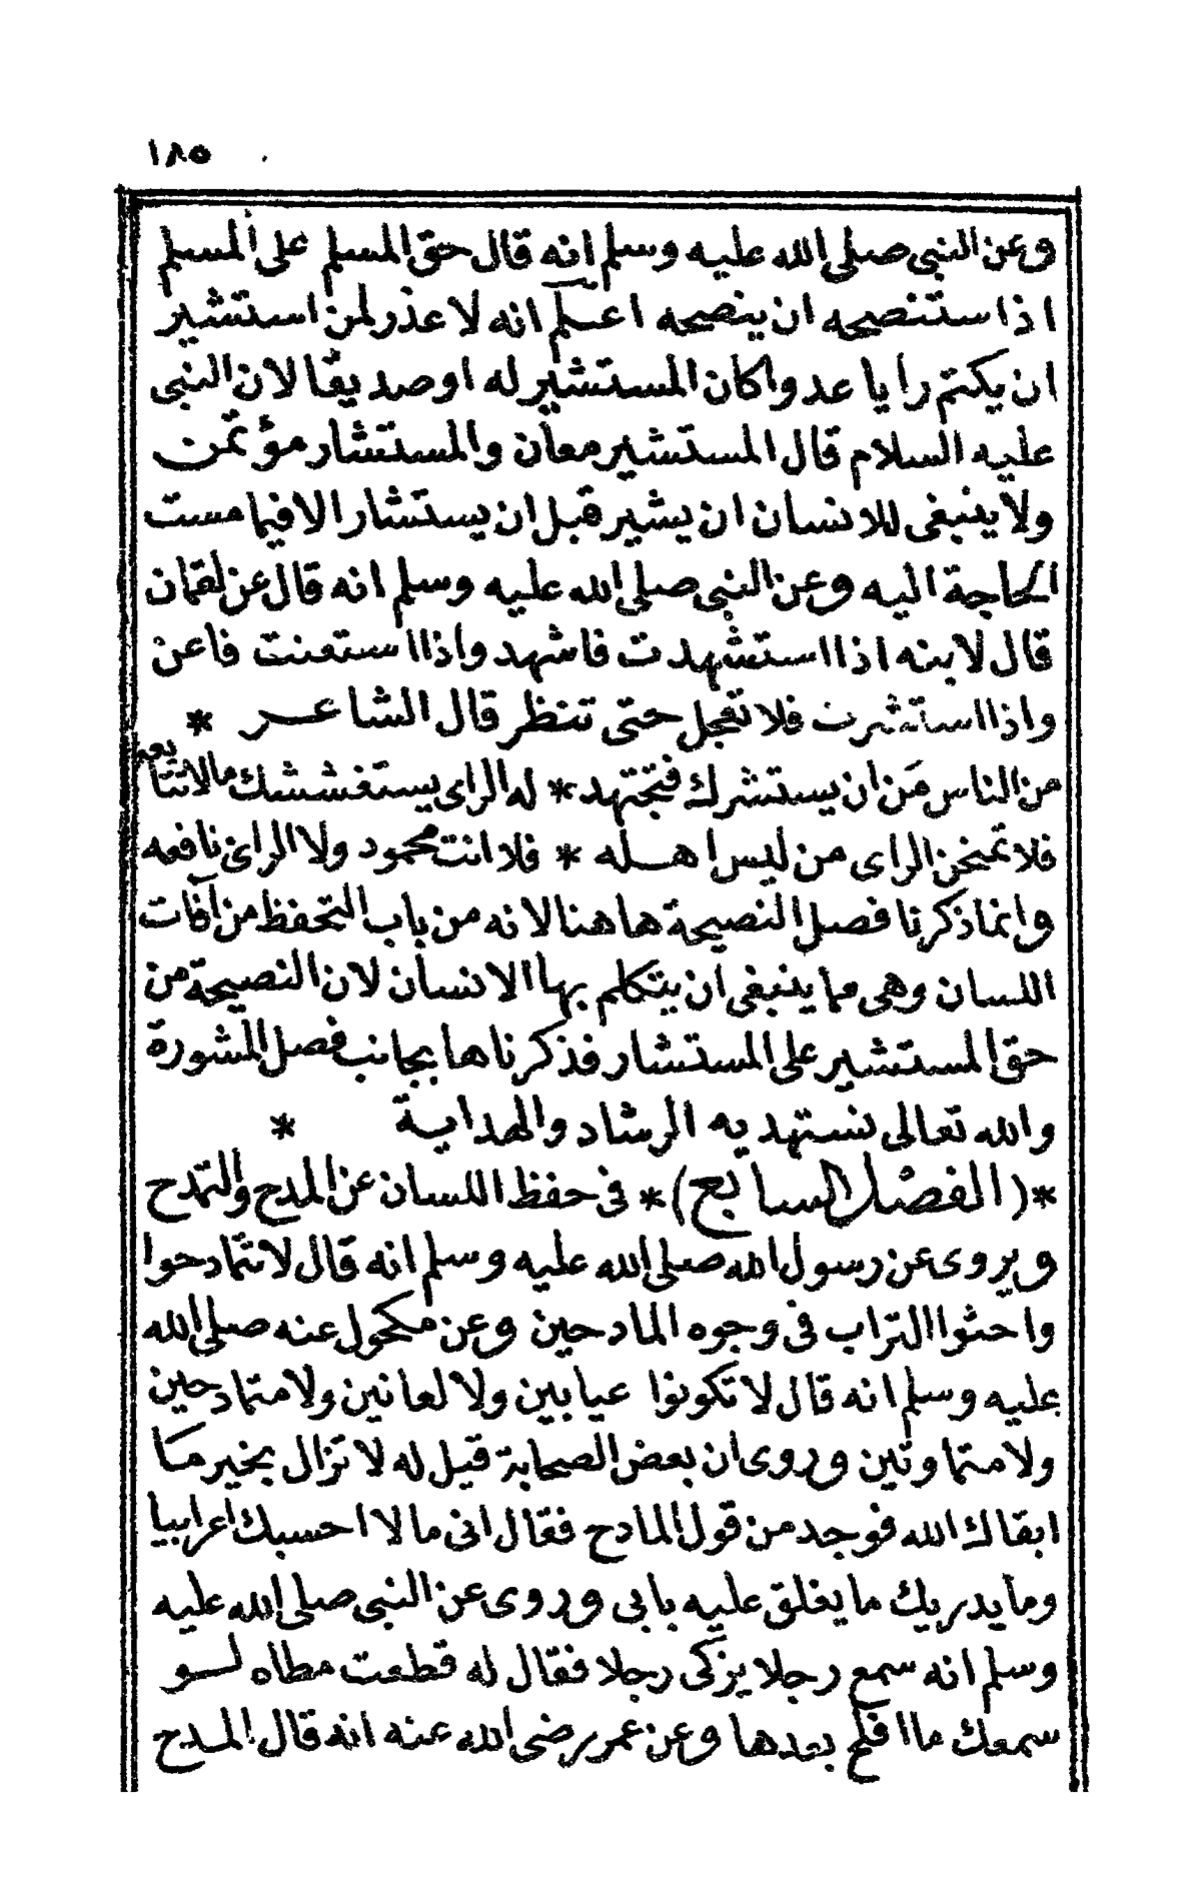 ١٨٥
وعن النبى صلى الله عليه وسلم انه قال حق المسلم على المسلم
اذا ستنصحه ان ينصحه اعـلم انه لا عذر لمن استشير
ان يكتم رايا عدوا كان المستشير له اوصديقا لان النبى
عليه السلام قال المستشير معان والمستشار مؤتمن
ولا ينبغى للانسان ان يشير قبل ان يستشار الا فيما مست
الحاجة اليه وعن النبى صلى الله عليه وسلم انه قال عن لقمان
قال لابنه اذا استشهدت فاشهد واذا استعنت فاعن
واذا استشرت فلا تعجل حتى تنظر قال الشاعـر *
من الناس من ان يستشرك فتجتهد * له الراى يستغششك مالا تتابعه
فلا تمنحن الراى من ليس اهـله * فلا انت محمود ولا الراى نافعه
وانما ذكرنا فصل النصيحة هاهنا لانه من باب التحفظ من آفات
اللسان وهى مما ينبغى ان يتكلم بها الانسان لان النصيحة من
حق المستشير على المستشار فذكرناها بجانب فصل المشورة
والله تعالى نستهديه الرشاد والهداية *
*(الفصل السابع)* فى حفظ اللسان عن المدح والتمدح
ويروى عن رسول الله صلى الله عليه وسلم انه قال لا تتمادحوا
واحثوا التراب فى وجوه المادحين وعن مكحول عنه صلى الله
عليه وسلم انه قال لا تكونوا عيابين ولا لعانين ولا متمادحين
ولا متماوتين وروى ان بعض الصحابة قيل له لا تزال بخير ما
ابقاك الله فوجد من قول المادح فقال انى مالا احسبك اعرابيا
وما يدريك ما يغلق عليه بابى وروى عن النبى صلى الله عليه
وسلم انه سمع رجلا يزكى رجلا فقال له قطعت مطاه لـو
سمعك ما افلح بعدها وعن عمر رضى الله عنه انه قال المـدح